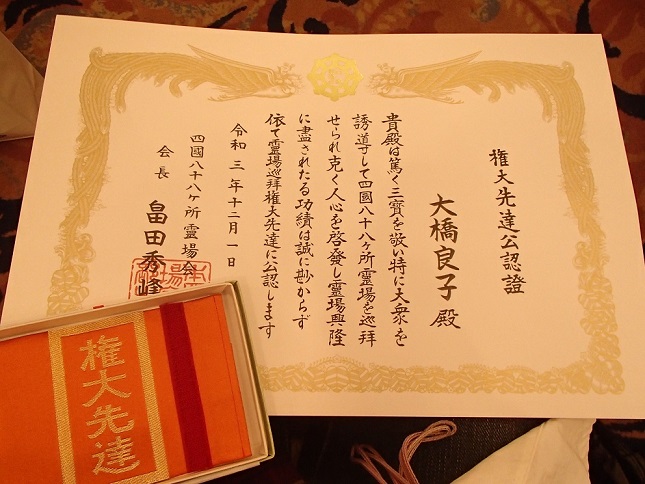 権大先達公認證
大橋良子殿
貴殿は篤く三寳を敬い特に大衆を
誘導して四國八十八ヶ所霊場を巡拝
せられ克く人心を啓發し霊場興隆
に盡されたる功績は誠に尠からず
依て霊場巡拝権大先達に公認します
令和三年十二月一日
四國八十八ヶ所霊場会
会長 畠田秀峰
権大先達